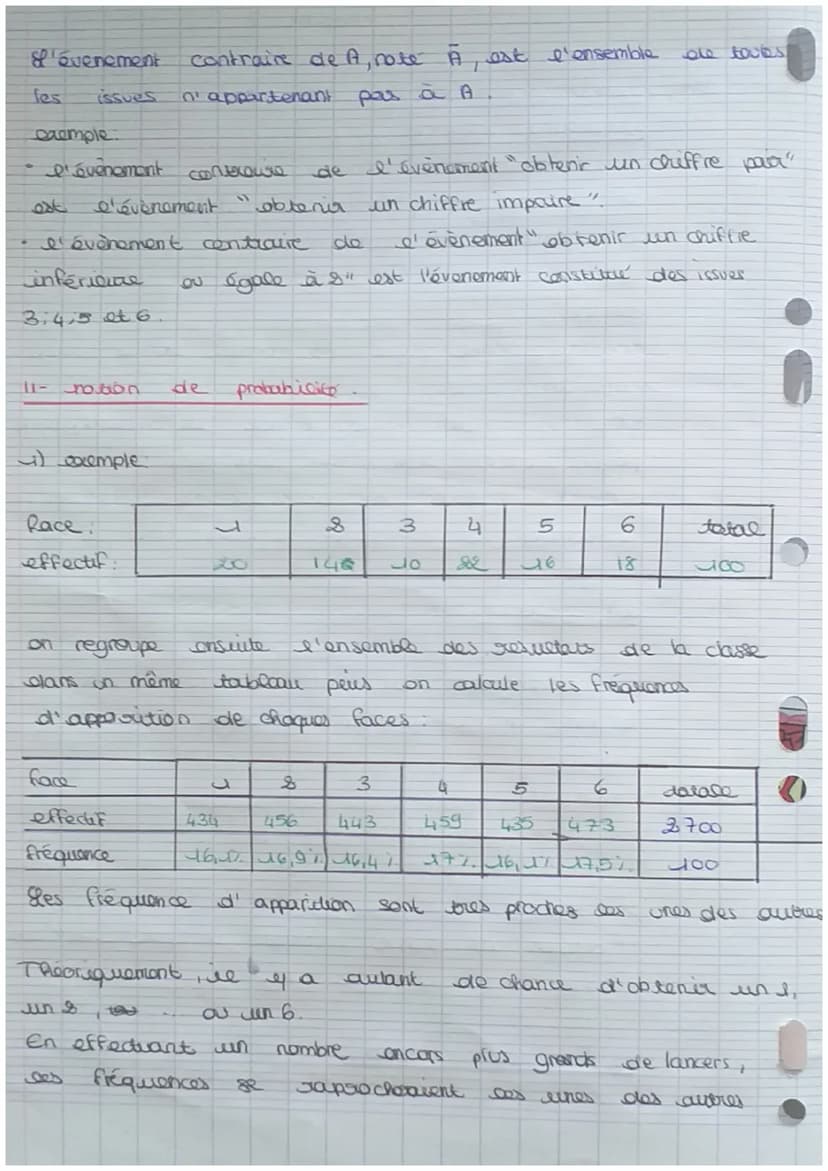 L'évenement contraire de A, noté Ā, est l'ensemble de toutes
les issues n'appartenant pas à A.
exemple:
- l'évènement contraire de l'évènement "obtenir un chiffre pair"
est l'évènement "obtenir un chiffre impaire".
- l'évènement contraire de l'évènement "obtenir un chiffre
inférieure ou égale à 2" est l'évenement constitué des issues
3; 4; 5 et 6.
II- notion de probabilité.
1) exemple
Face: 1 2 3 4 5 6 total
effectif: 20 14 10 22 16 18 100
on regroupe ensuite l'ensemble des resultats de la classe
dans un même tableau puis on calcule les fréquences
d'apparition de chaques faces:
face 1 2 3 4 5 6 totale
effectif 434 456 443 459 435 473 2700
fréquence 16,1% 16,9% 16,4% 17% 16,1% 17,5% 100
Les fréquence d'apparition sont tres proches les unes des autres
Théoriquement, il y a autant de chance d'obtenir un 1,
un 2, ... ou un 6.
En effectuant un nombre encors plus grands de lancers,
les fréquences se raprocheraient les unes des autres